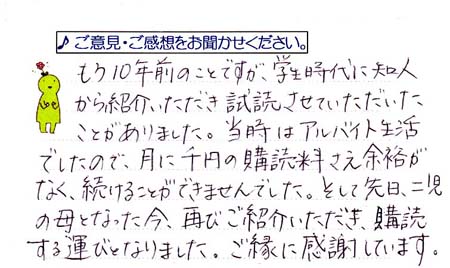 ♪ご意見・ご感想をお聞かせください。
もう10年前のことですが、学生時代に知人
から紹介いただき試読させていただいた
ことがありました。当時はアルバイト生活
でしたので、月に千円の購読料さえ余裕が
なく、続けることができませんでした。そして先日、二児
の母となった今、再びご紹介いただき、購読
する運びとなりました。ご縁に感謝しています。